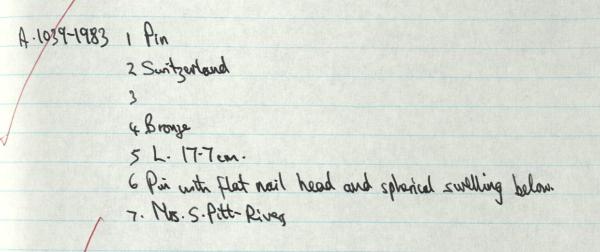 A.1039-1983 1 Pin
2 Switzerland
3
4 Bronze
5 L. 17.7cm.
6 Pin with flat nail head and spherical swelling below.
7. Mrs. S. Pitt-Rivers